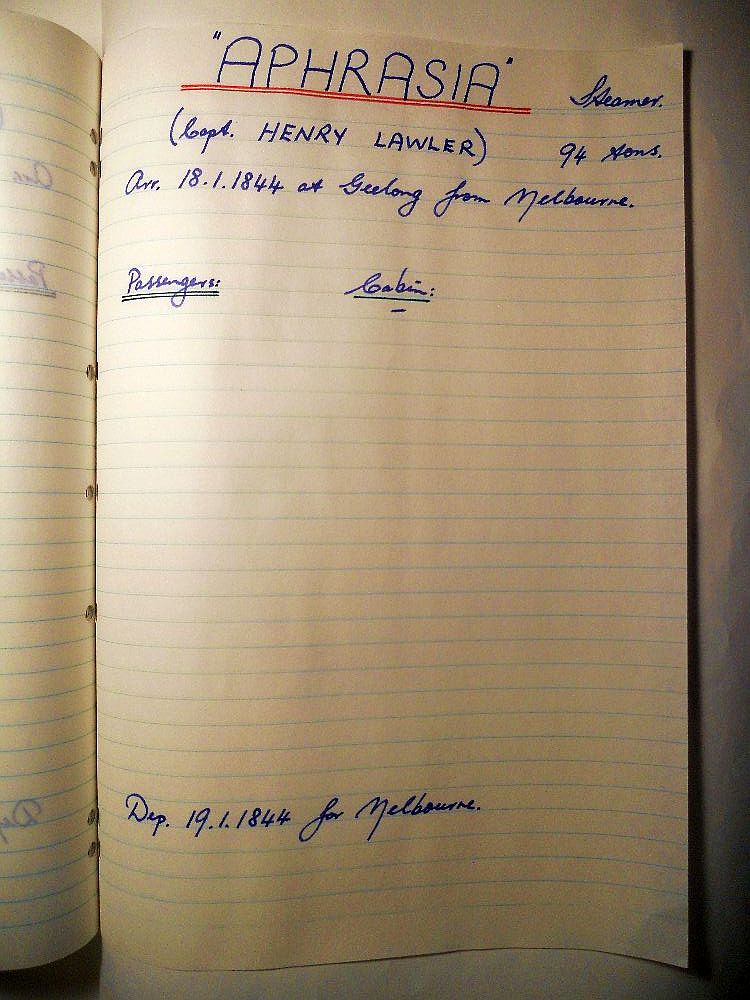 "APHRASIA" Steamer.
(Capt. HENRY LAWLER) 94 tons.
Arr. 18.1.1844 at Geelong from Melbourne.
Passengers: Cabin:
–
Dep. 19.1.1844 for Melbourne.